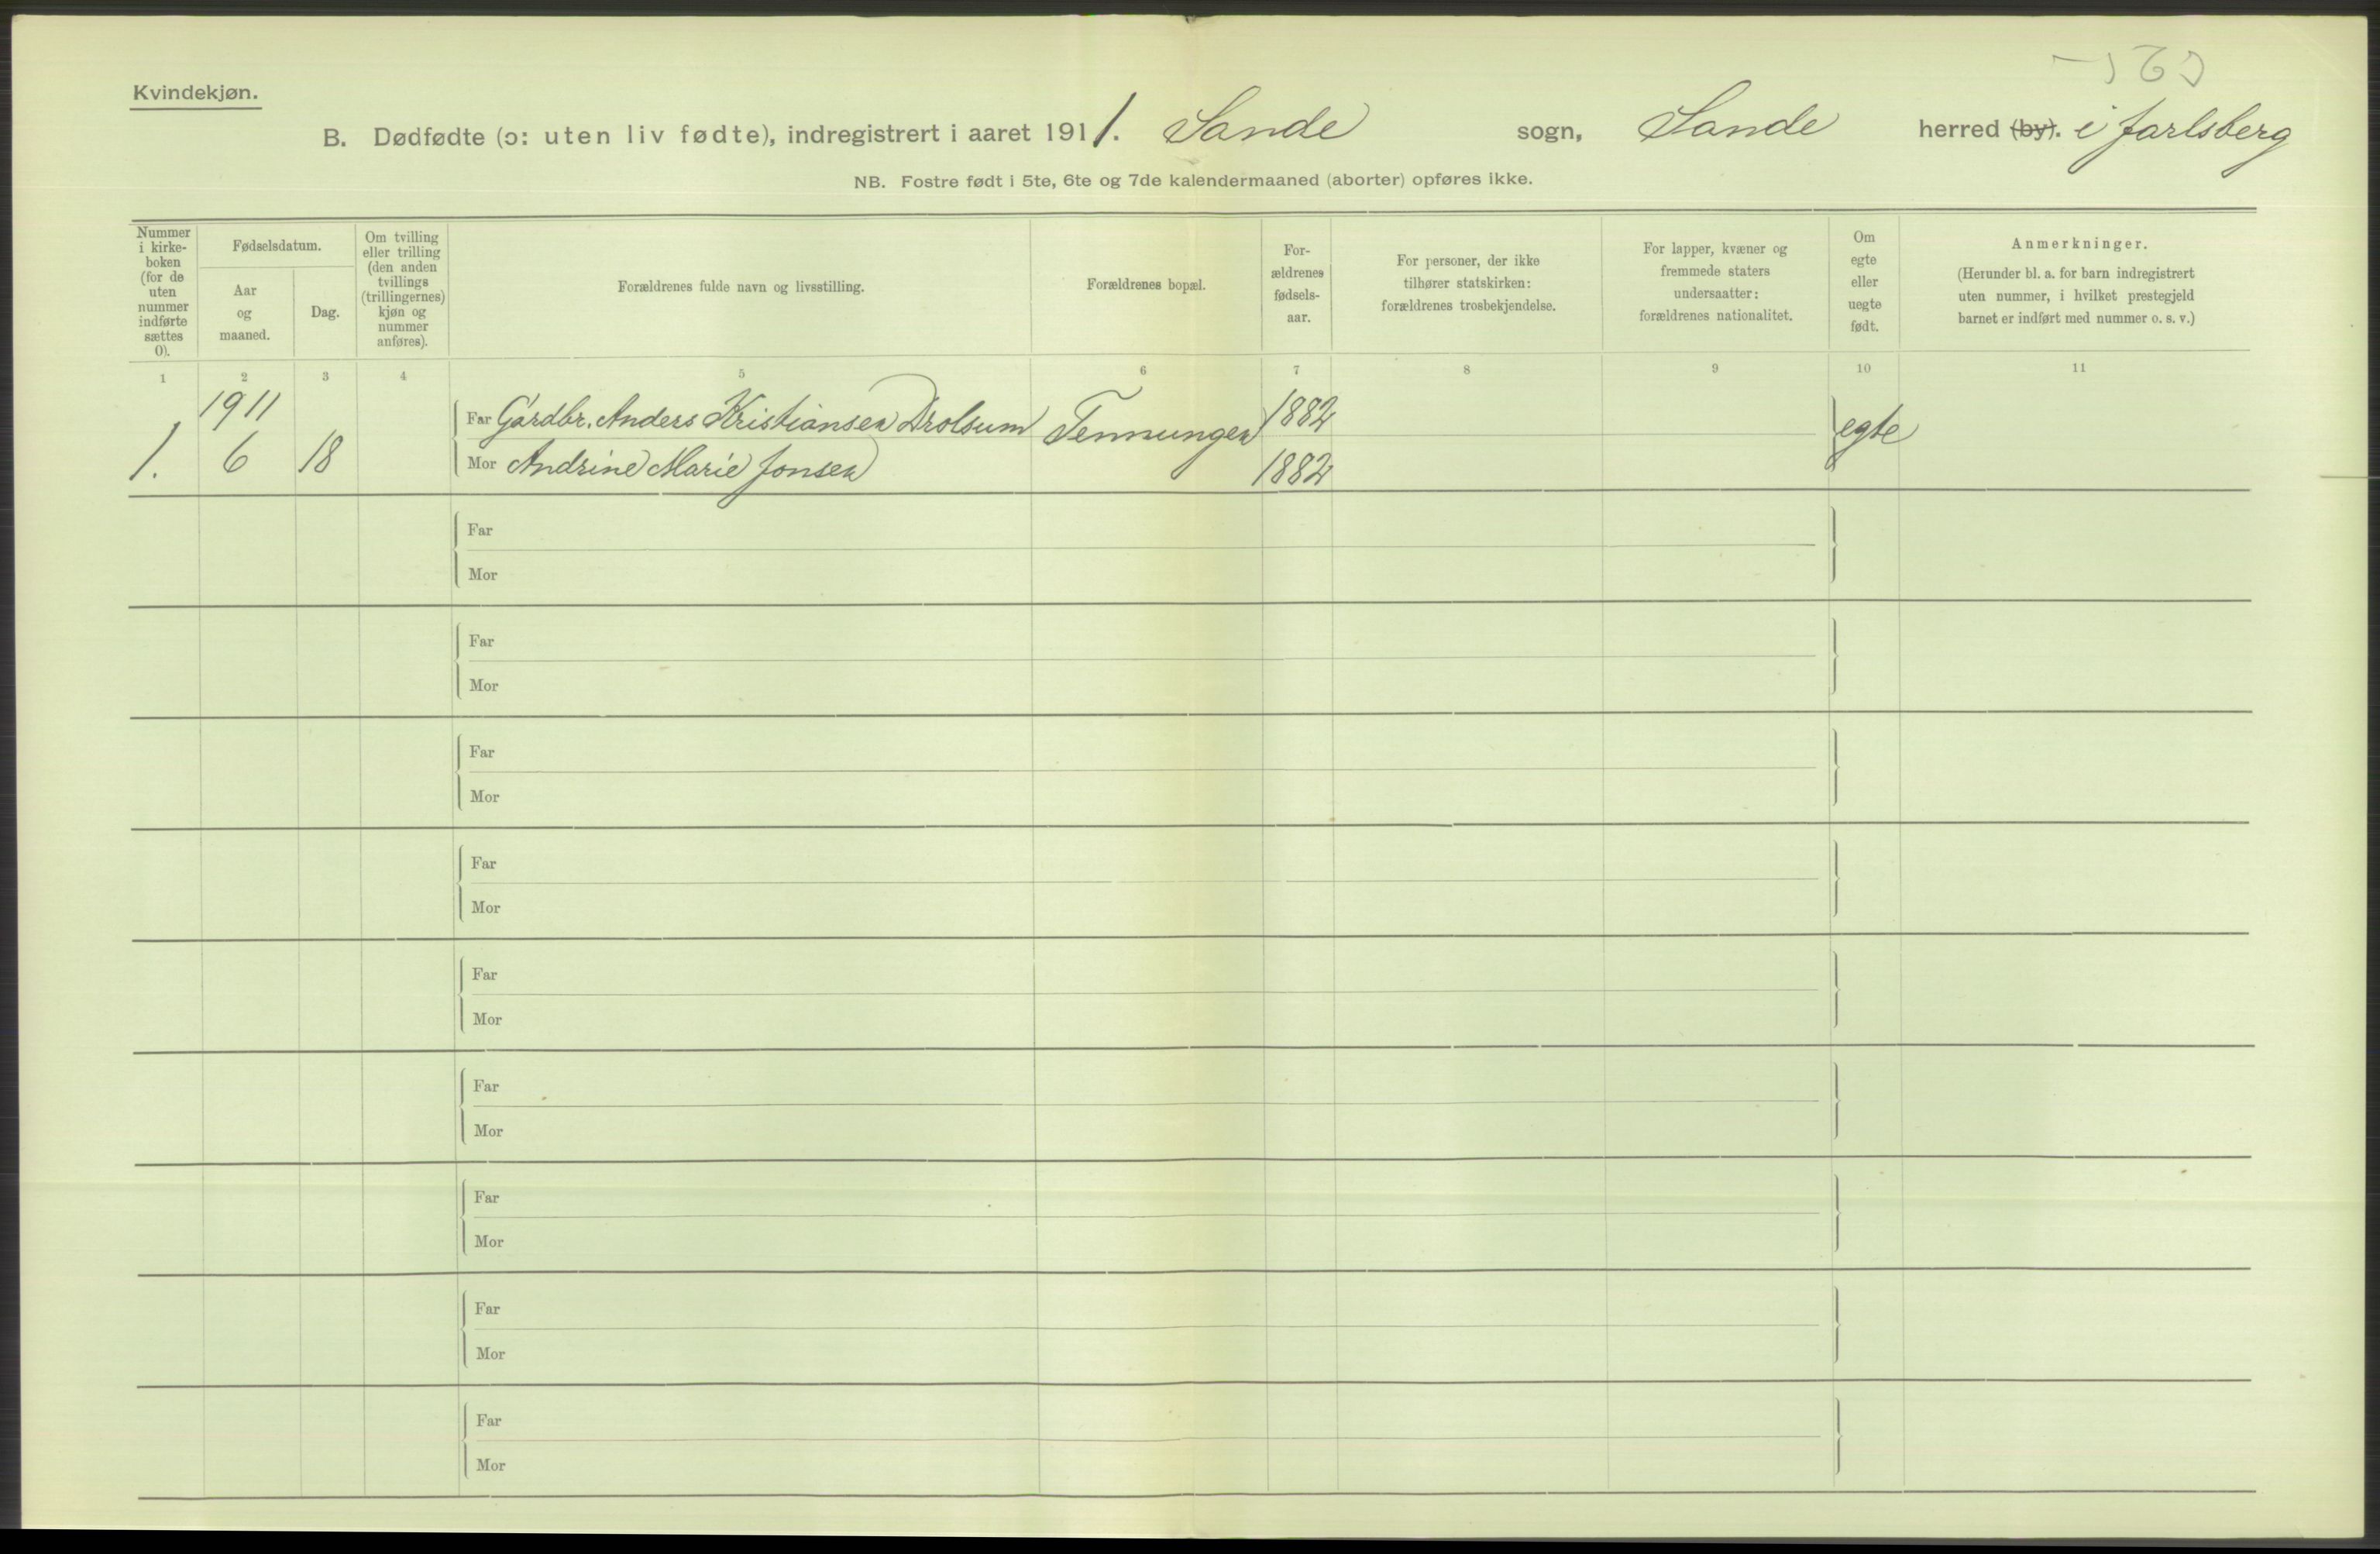 Kvindekjøn.
B. Dødfødte (ɔ: uten liv fødte), indregistrert i aaret 1911. Sande sogn, Sande herred (by). i Jarlsberg
NB. Fostre født i 5te, 6te og 7de kalendermaaned (aborter) opføres ikke.
Nummer
i kirke-
boken
(for de
uten
nummer
indførte
sættes
0).
Fødselsdatum.
Aar
og
maaned.
Dag.
Om tvilling
eller trilling
(den anden
tvillings
(trillingernes)
kjøn og
nummer
anføres).
Forældrenes fulde navn og livsstilling.
Forældrenes bopæl.
For-
ældrenes
fødsels-
aar.
For personer, der ikke
tilhører statskirken:
forældrenes trosbekjendelse.
For lapper, kvæner og
fremmede staters
undersaatter:
forældrenes nationalitet.
Om
egte
eller
uegte
født.
Anmerkninger.
(Herunder bl. a. for barn indregistrert
uten nummer, i hvilket prestegjeld
barnet er indført med nummer o. s. v.)
1 2 3 4 5 6 7 8 9 10 11
1911
Far Gårdbr. Anders Kristiansen Drolsum Tennungen 1882 egte
1. 6 18 Mor Andrine Marie Jonsen 1882
Far
Mor
Far
Mor
Far
Mor
Far
Mor
Far
Mor
Far
Mor
Far
Mor
Far
Mor
Far
Mor